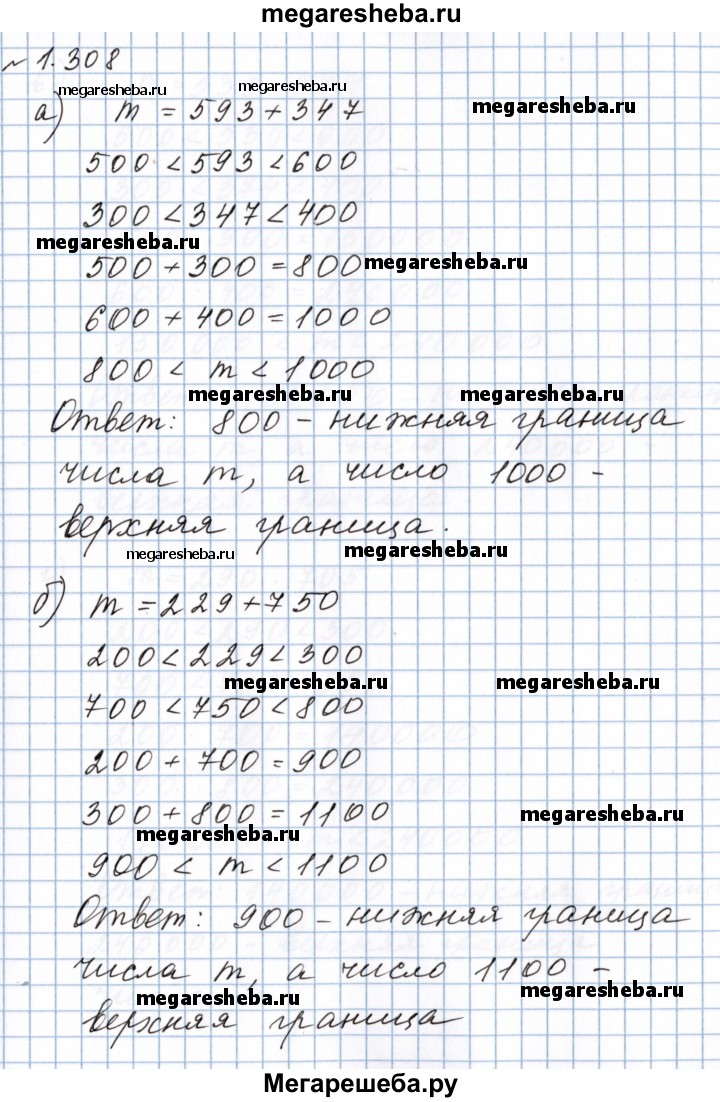 megaresheba.ru
~ 1.308
megaresheba.ru megaresheba.ru
а) m = 593 + 347 megaresheba.ru
500 < 593 < 600
300 < 347 < 400
megaresheba.ru
500 + 300 = 800 megaresheba.ru
600 + 400 = 1000
800 < m < 1000
megaresheba.ru megaresheba.ru
Ответ: 800 – нижняя граница
числа m, а число 1000 –
верхняя граница.
megaresheba.ru megaresheba.ru
б) m = 229 + 750
200 < 229 < 300
megaresheba.ru megaresheba.ru
700 < 750 < 800
200 + 700 = 900
300 + 800 = 1100
megaresheba.ru megaresheba.ru
900 < m < 1100
Ответ: 900 – нижняя граница
числа m, а число 1100 –
megaresheba.ru megaresheba.ru
верхняя граница
Мегарешеба.ру